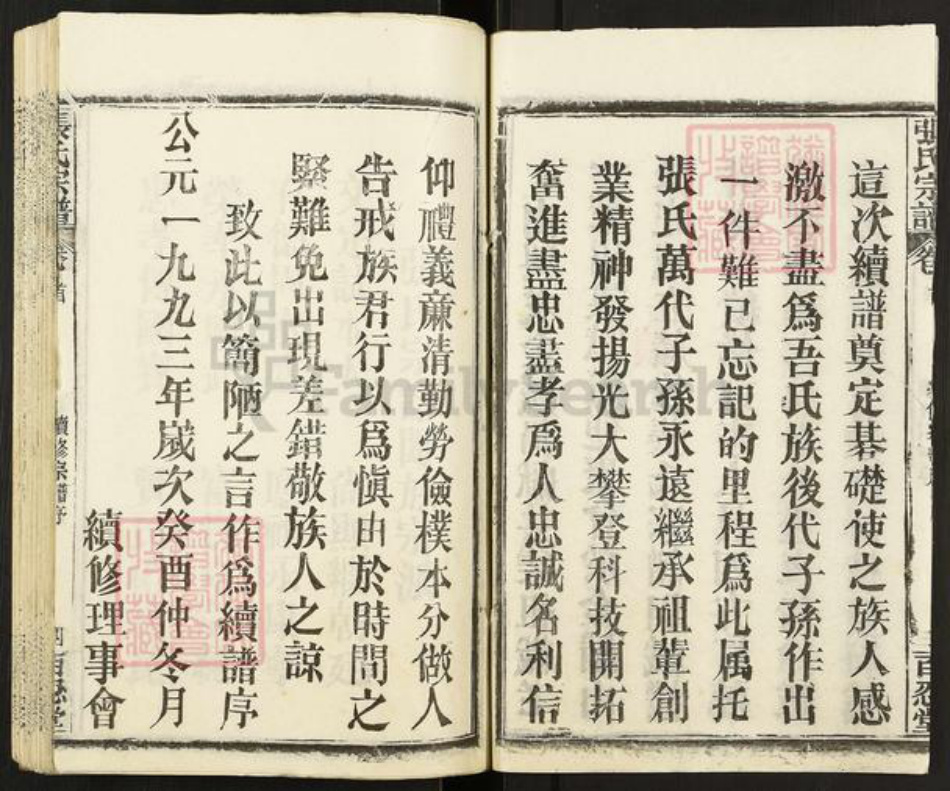 這次續譜奠定碁礎使之族人感
激不盡爲吾氏族後代子孫作出
一件難已忘記的里程爲此属托
張氏萬代子孫永遠繼承祖輩創
業精神發揚光大攀登科技開拓
奮進盡忠盡孝爲人忠誠名利信
仰禮義亷清勤勞儉樸本分做人
告戒族君行以爲愼由於時間之
緊難免出現差錯敬族人之諒
致此以简陋之言作爲續譜序
公元一九九三年嵗次癸酉仲冬月
續修理事會
張氏宗譜
卷首
續修宗譜序
百忍堂
張氏宗譜
卷
百忍堂
FamilySearch